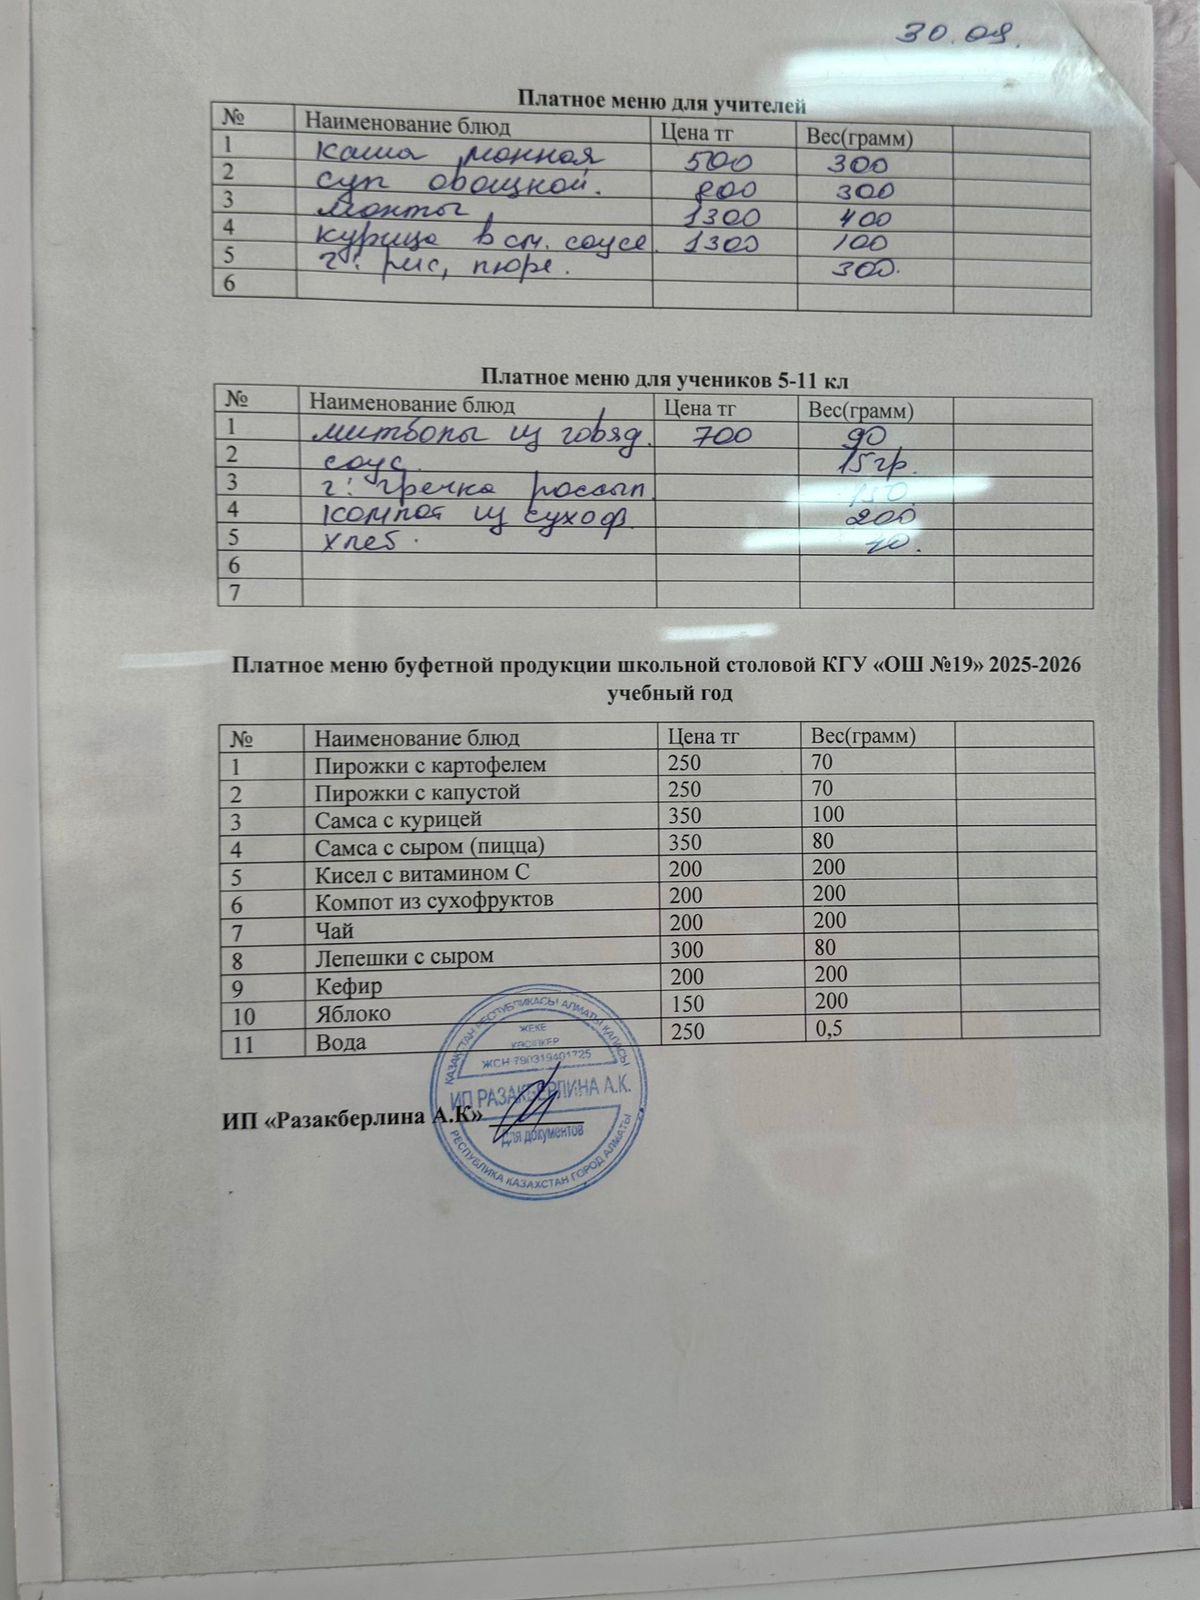 30.09.
Платное меню для учителей
№ Наименование блюд Цена тг Вес(грамм)
1 каша манная 500 300
2 суп овощной. 800 300
3 манты 1300 400
4 курица в см. соусе. 1300 100
5 г: рис, пюре. 300.
6
Платное меню для учеников 5-11 кл
№ Наименование блюд Цена тг Вес(грамм)
1 митболы из говяд. 700 90
2 соус. 15гр.
3 г: гречка рассып. 150.
4 компот из сухоф. 200
5 хлеб.
6
7
Платное меню буфетной продукции школьной столовой КГУ «ОШ №19» 2025-2026
учебный год
№ Наименование блюд Цена тг Вес(грамм)
1 Пирожки с картофелем 250 70
2 Пирожки с капустой 250 70
3 Самса с курицей 350 100
4 Самса с сыром (пицца) 350 80
5 Кисел с витамином С 200 200
6 Компот из сухофруктов 200 200
7 Чай 200 200
8 Лепешки с сыром 300 80
9 Кефир 200 200
10 Яблоко 150 200
11 Вода 250 0,5
ҚАЗАҚСТАН РЕСПУБЛИКАСЫ АЛМАТЫ ҚАЛАСЫ
ЖЕКЕ
КӘСІПКЕР
ЖСН 790319401725
ИП РАЗАКБЕРЛИНА А.К.
ИП «Разакберлина А.К»
для документов
РЕСПУБЛИКА КАЗАХСТАН ГОРОД АЛМАТЫ